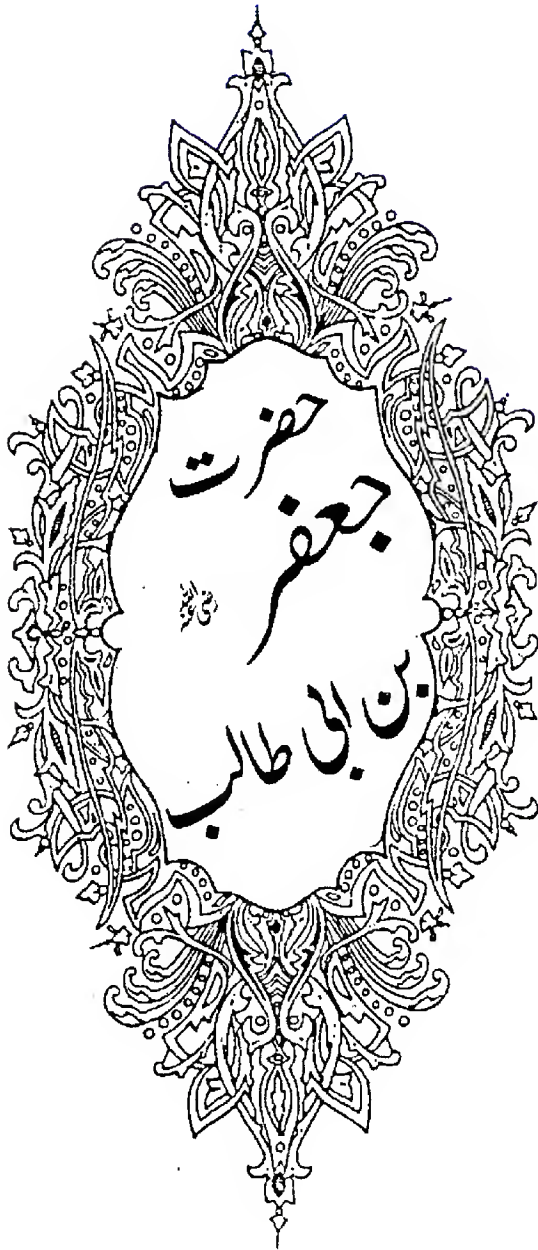 حضرت
جعفر
رضی اللہ عنہ
بن ابی طالب